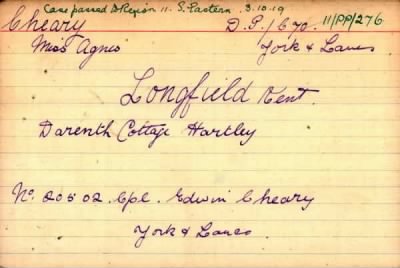 Case passed to Region 11. S. Eastern. 3.10.19
Cheary D.P./670. 11/PP/276
Miss Agnes York & Lancs
Longfield Kent.
Darenth Cottage Hartley
No. 20502. Cpl. Edwin Cheary
York & Lancs.